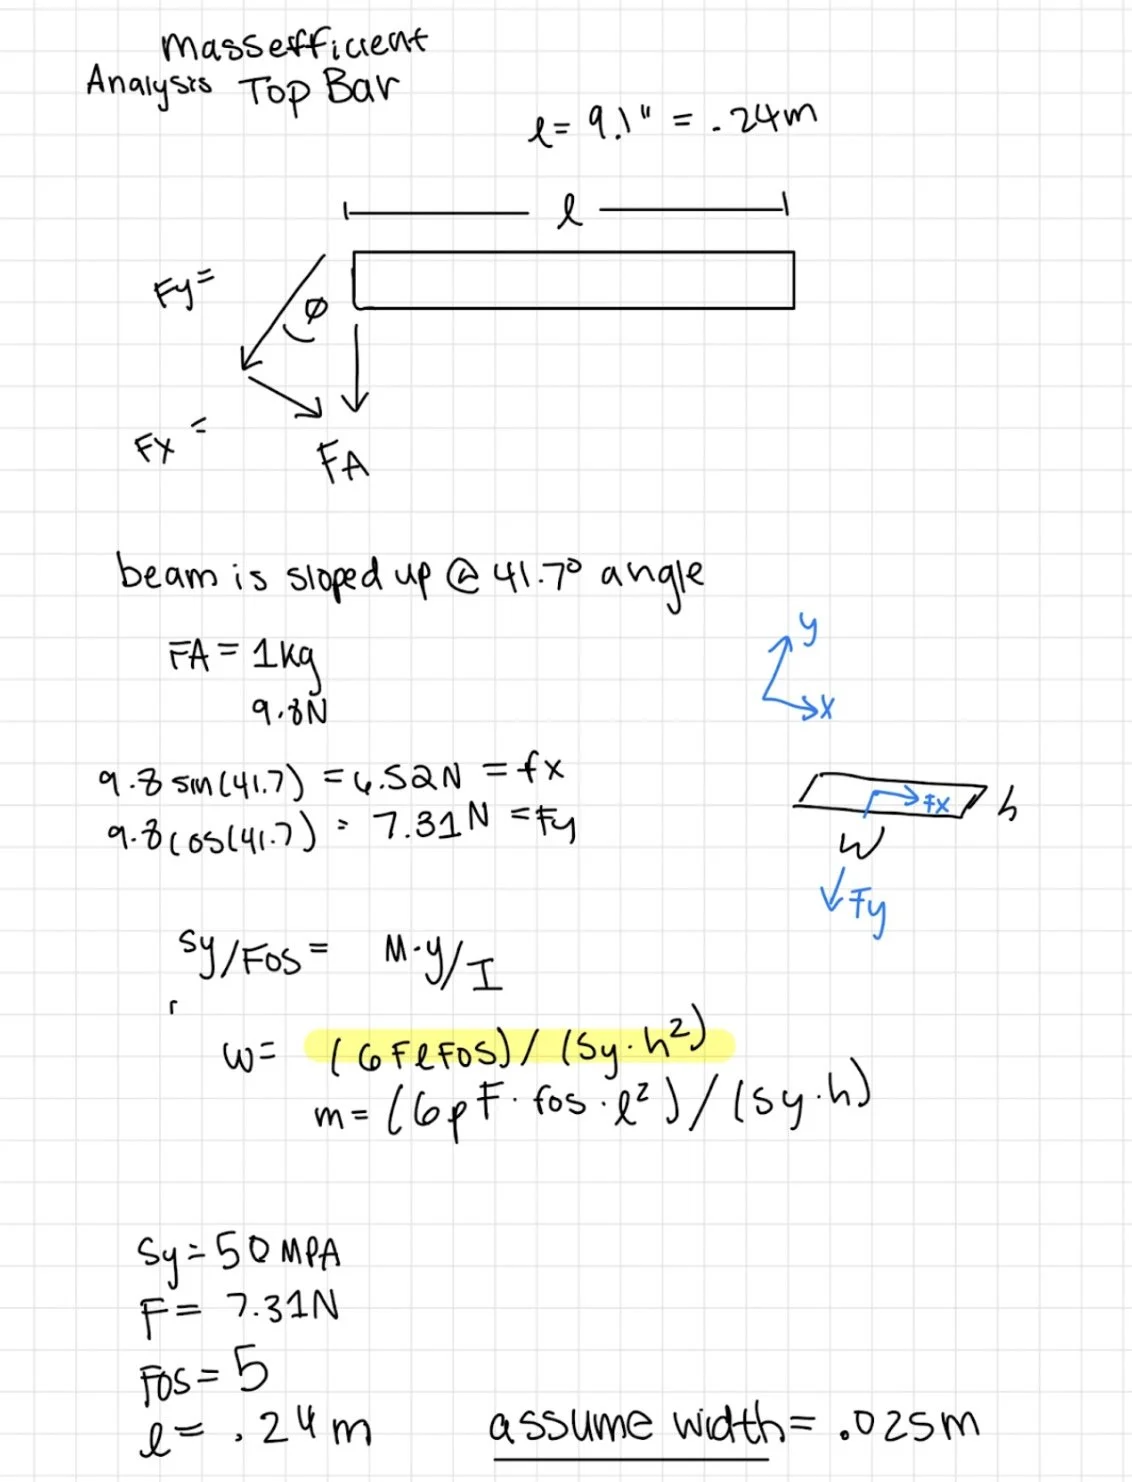 Mass efficient
Analysis Top Bar
l = 9.1" = .24m
l
Fy =
Ø
Fx =
FA
beam is sloped up @ 41.7° angle
FA = 1kg
9.8N
y
x
9.8 sin(41.7) = 6.52N = fx
9.8cos(41.7) = 7.31N = Fy
Fx
h
w
Fy
Sy/FOS = M·y/I
w = (6FlFOS)/(Sy·h²)
m = (6ρF·fos·l²)/(Sy·h)
Sy = 50 MPA
F = 7.31N
FOS = 5
l = .24m
assume width = .025m